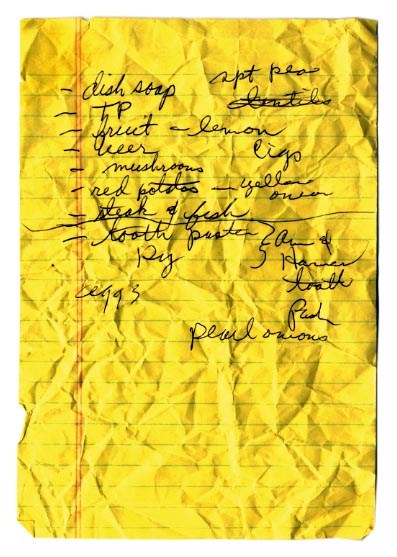 - dish soap spt peas
- TP Lentils
- fruit - lemon
- beer Cigs
- mushrooms
- red potatos - yellow onion
- steak & fish
- tooth paste } Arm &
Hammer
tooth
eggs
pearl onions